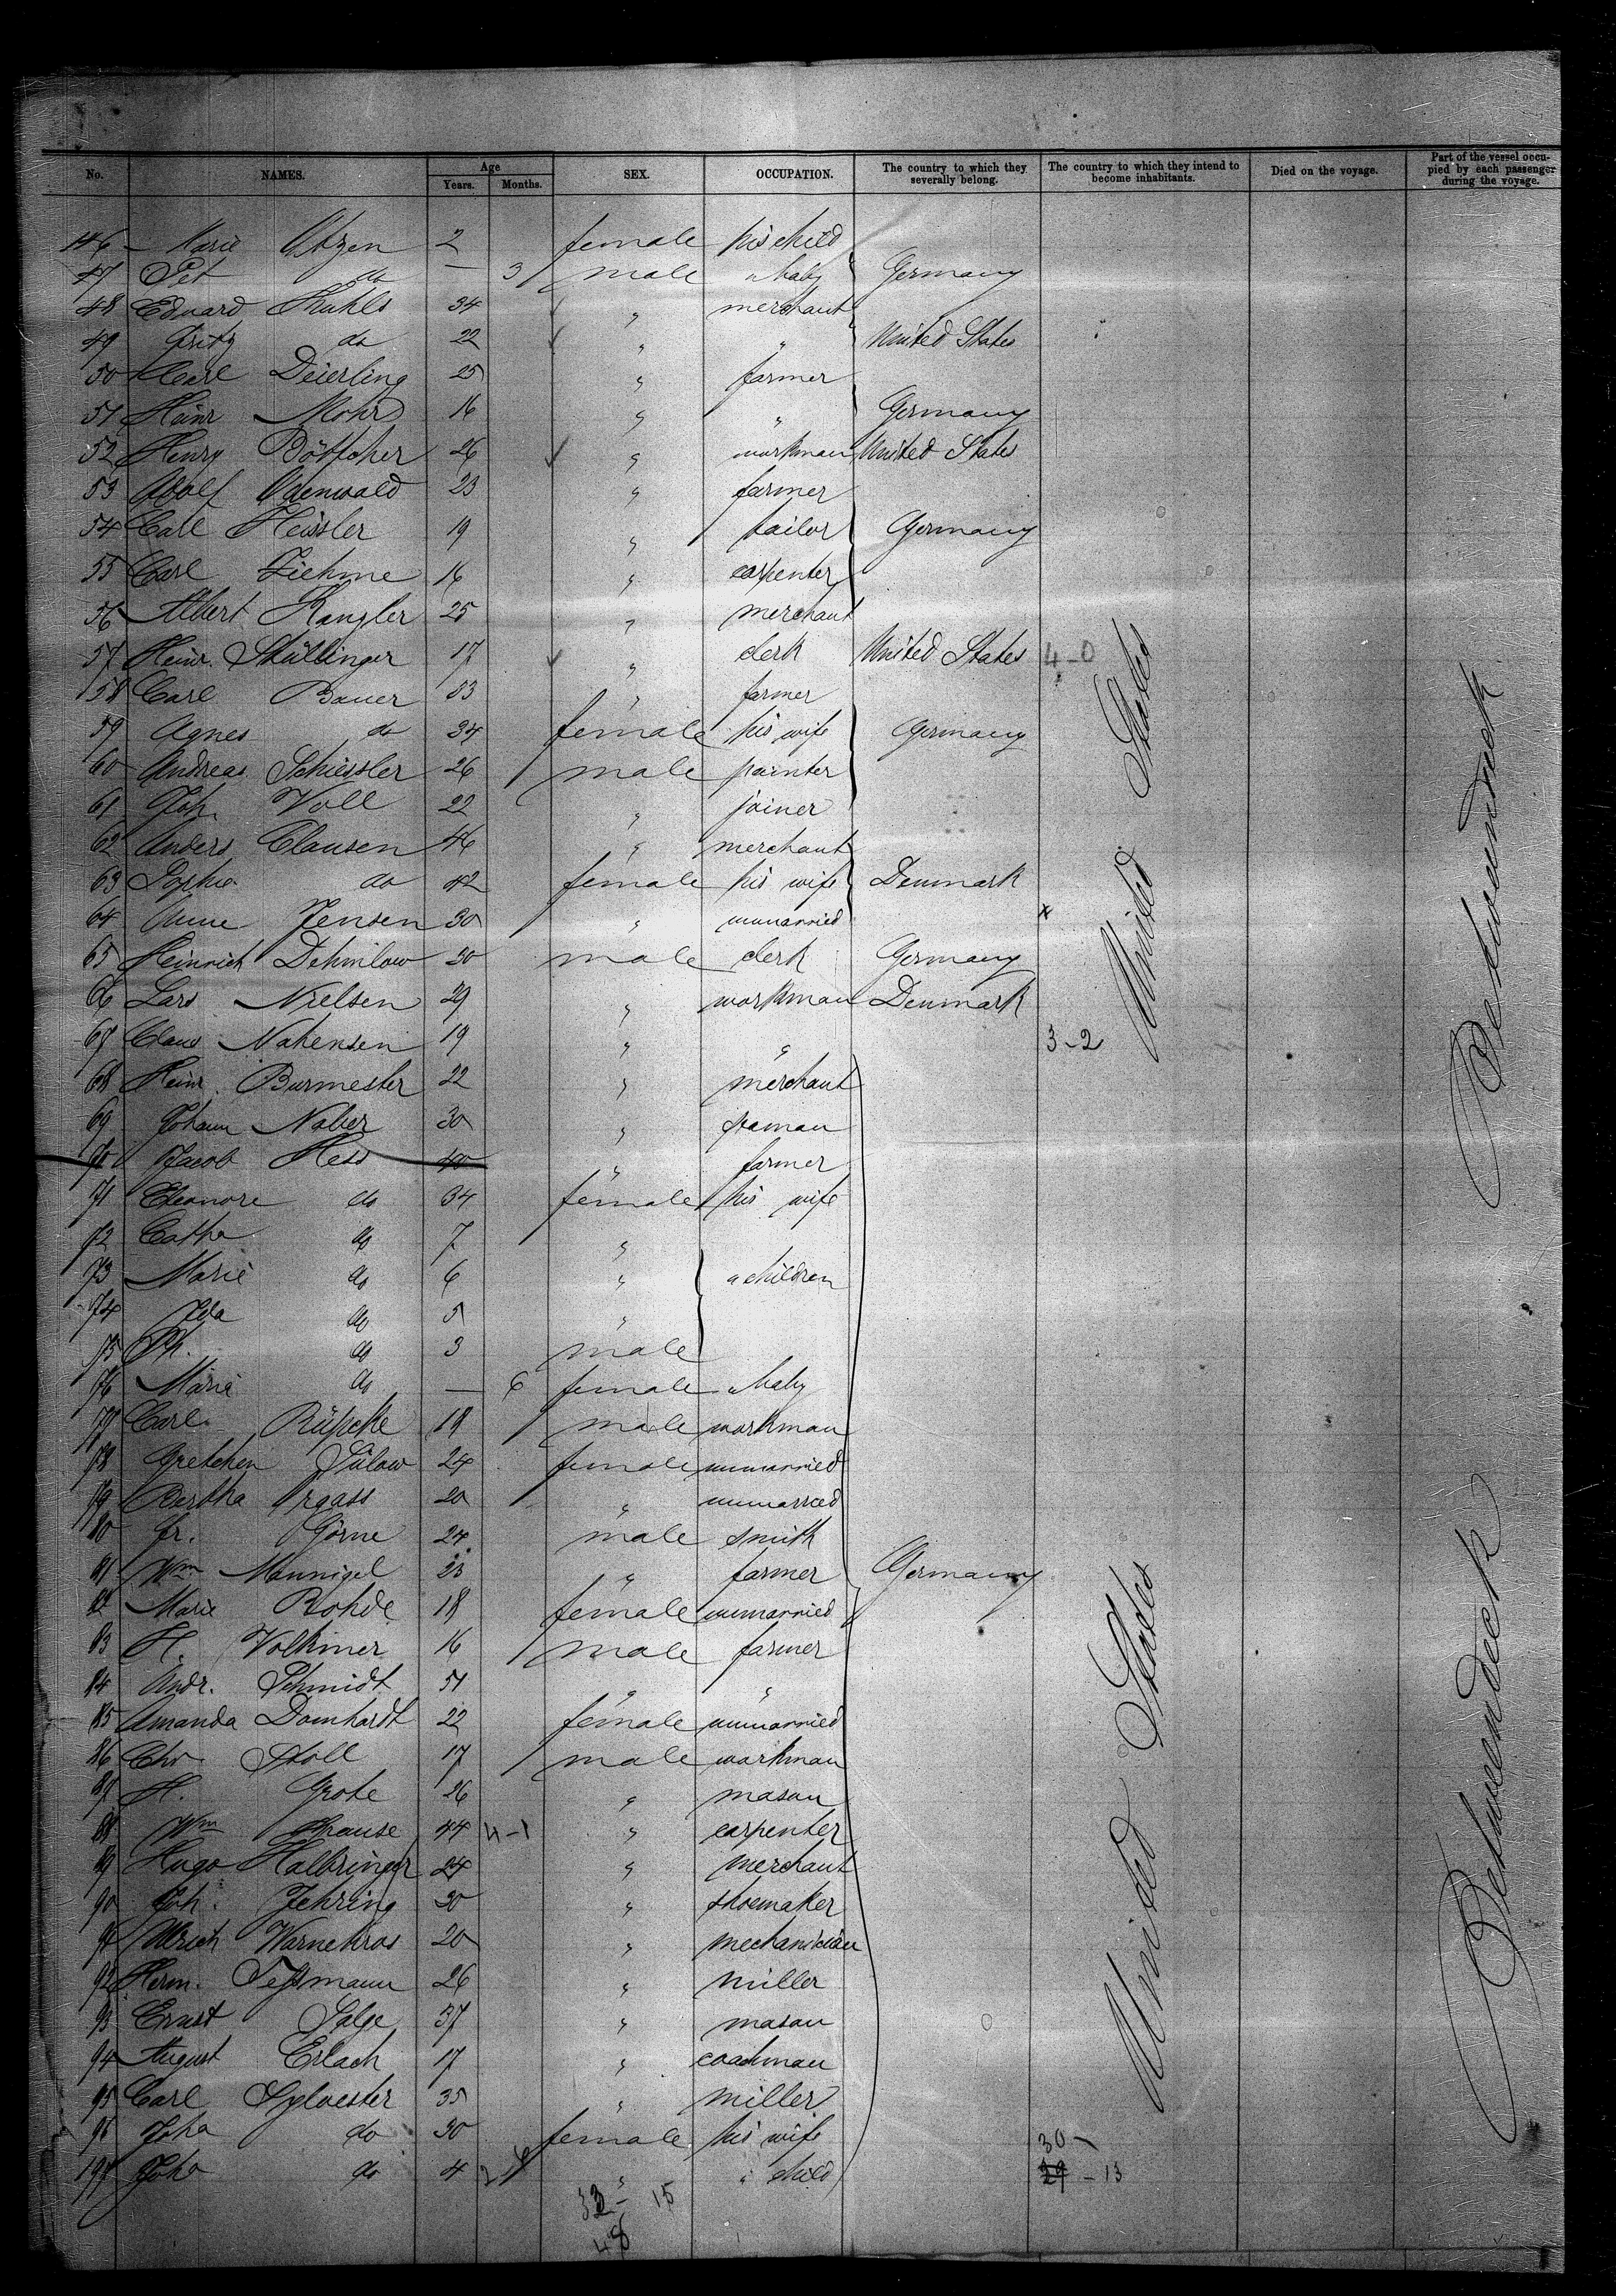 No. NAMES. Age Years. Months. SEX. OCCUPATION. The country to which they severally belong. The country to which they intend to become inhabitants. Died on the voyage. Part of the vessel occupied by each passenger during the voyage.
146 Marie 2 female his child
47 Pet do — 3 male " baby Germany
48 Eduard 34 " merchant
49 Fritz do 22 " " United States
50 Carl Deierling 25 " farmer
51 Heinr Mohr 16 " " Germany
52 Henry Böttcher 26 " workman United States
53 Adolf Odenwald 23 " farmer
54 Carl Heissler 19 " tailor Germany
55 Carl Ziehme 16 " carpenter
56 Albert Kanzler 25 " merchant
57 Heinr. 17 " clerk United States 4-0
58 Carl Bauer 33 " farmer
59 Agnes do 34 female his wife Germany
60 Andreas Schüssler 26 male painter
61 Joh. Voll 22 " joiner
62 Anders Clausen 46 " merchant
63 Sophie do 42 female his wife Denmark
64 Anne Jensen 30 " unmarried x
65 Heinrich Dehmlow 30 male clerk Germany
66 Lars Nielsen 29 " workman Denmark
67 Claus 19 " " 3-2
68 Heinr. Burmester 22 " merchant
69 Johann Naber 30 "
70 Jacob Hess 40 " farmer
71 Eleonore do 34 female his wife
72 Catha do 7 "
73 Marie do 6 " " children
74 Ida do 5 "
75 Ph. do 3 male
76 Maria do — 6 female " baby
77 Carl Rüpcke 18 male workman
78 Gretchen Sülow 24 female unmarried
79 Bertha 20 " unmarried
80 Fr. Görne 24 male smith
81 Wm. 23 " farmer Germany
82 Marie Rohde 18 female unmarried
83 H. Volkmer 16 male farmer
84 Andr. Schmidt 51 " "
85 Amanda Domhardt 22 female unmarried
86 Chr Stoll 17 male workman
87 H. Grote 26 " mason
88 Wm Krause 44 4-1 " carpenter
89 Hugo 24 " merchant
90 Joh. Jehring 20 " shoemaker
91 Ulrich Warnekros 20 " mechanician
92 Herm. Teßmann 26 " miller
93 Ernst Salge 37 " mason
94 August Erlach 17 " coachman
95 Carl Sylvester 35 " miller
96 Joha do 30 female his wife 30
197 Joha do 4 " " child 29 - 13
32 - 15
48
United States
United States
Betweendeck
Betweendeck